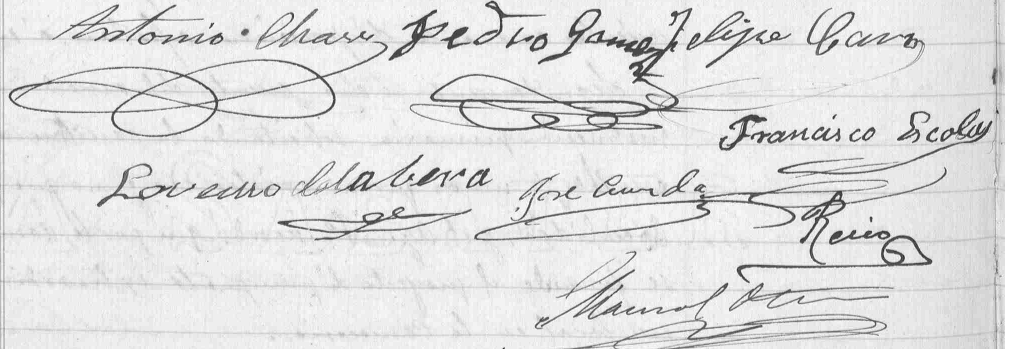 Antonio Chaves Pedro Gomez Felipe Caro
Francisco Escobar
Lorenzo de la bera Jose
Recio
Manuel